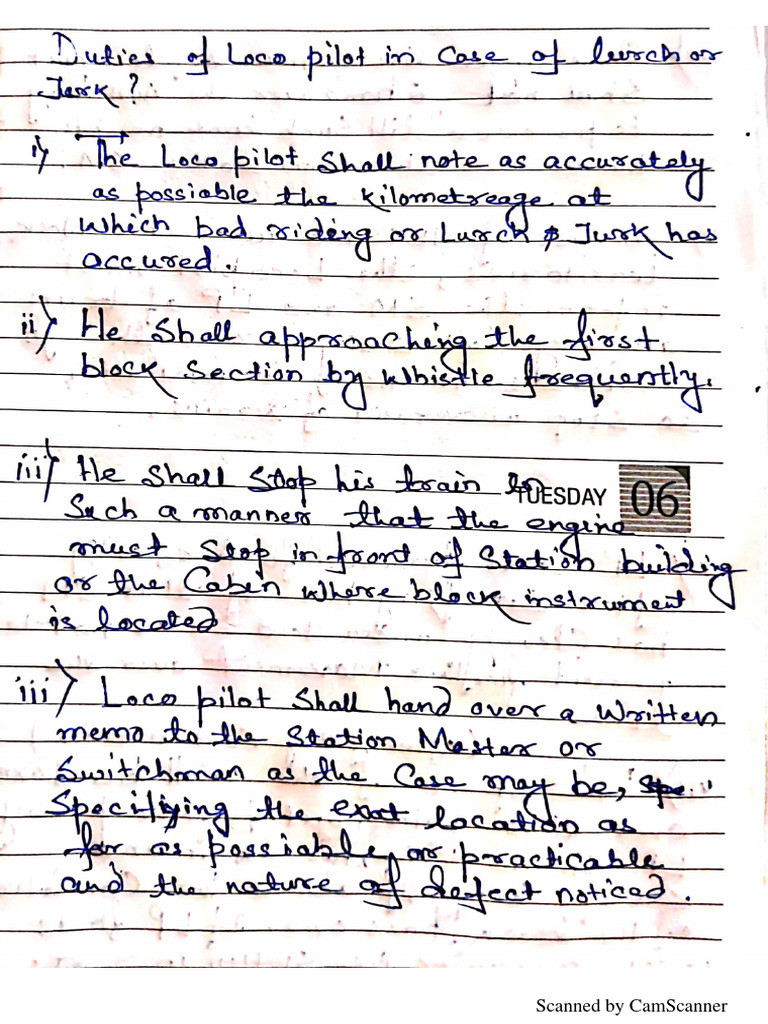 Duties of Loco pilot in Case of lurch or
Jerk?
i) The Loco pilot Shall note as accurately
as possiable the kilometreage at
which bad riding or Lurch & Jurk has
occured.
ii) He Shall approaching the first
block Section by whistle frequently.
iii) He Shall Stop his train in
TUESDAY 06
Such a manner that the engine
must Stop in front of Station building
or the Cabin where block instrument
is located
iii) Loco pilot Shall hand over a written
memo to the Station Master or
Switchman as the Case may be,
Specifiying the exat location as
far as possiable or practicable
and the nature of defect noticed.
Scanned by CamScanner